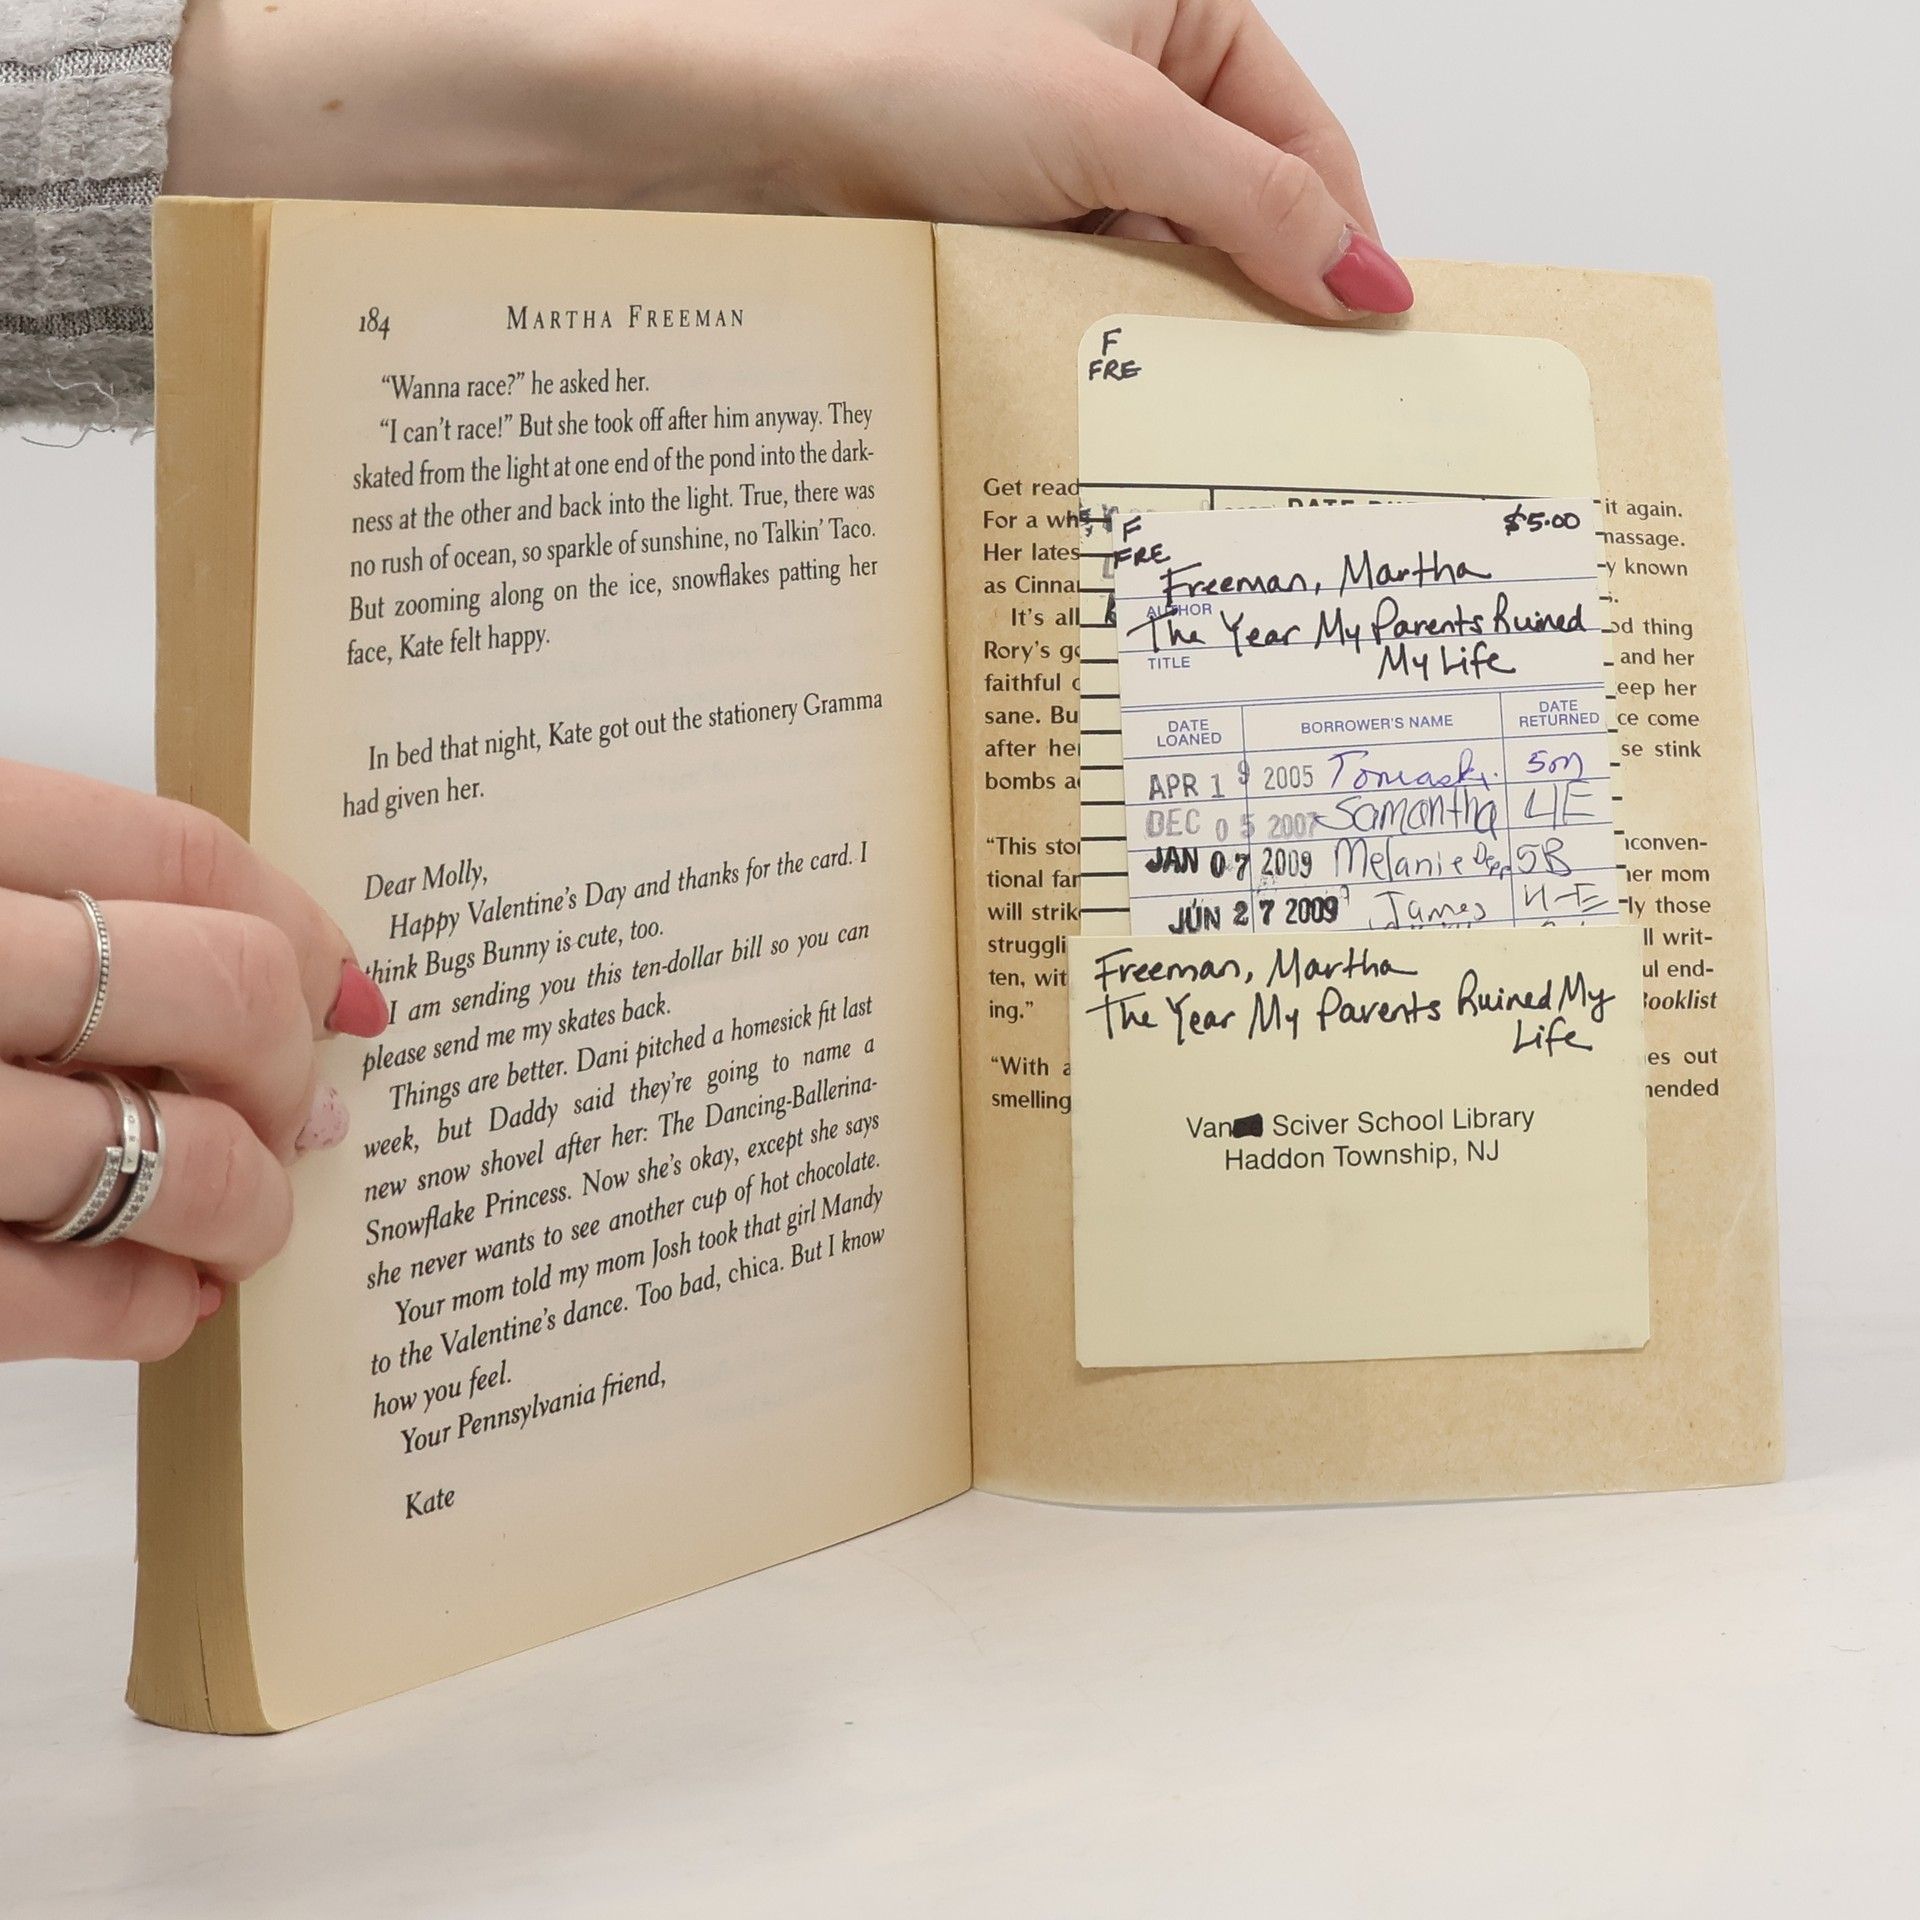 184 MARTHA FREEMAN
“Wanna race?” he asked her.
“I can’t race!” But she took off after him anyway. They
skated from the light at one end of the pond into the dark-
ness at the other and back into the light. True, there was
no rush of ocean, so sparkle of sunshine, no Talkin’ Taco.
But zooming along on the ice, snowflakes patting her
face, Kate felt happy.
In bed that night, Kate got out the stationery Gramma
had given her.
Dear Molly,
Happy Valentine’s Day and thanks for the card. I
think Bugs Bunny is cute, too.
I am sending you this ten-dollar bill so you can
please send me my skates back.
Things are better. Dani pitched a homesick fit last
week, but Daddy said they’re going to name a
new snow shovel after her: The Dancing-Ballerina-
Snowflake Princess. Now she’s okay, except she says
she never wants to see another cup of hot chocolate.
Your mom told my mom Josh took that girl Mandy
to the Valentine’s dance. Too bad, chica. But I know
how you feel.
Your Pennsylvania friend,
Kate
F
FRE
Get read
it again.
For a wh
massage.
Her lates
y known
as Cinna
It’s all
od thing
Rory’s go
and her
faithful
eep her
sane. Bu
ce come
after he
se stink
bombs a
“This sto
nconven-
tional far
her mom
will strik
ly those
struggli
ll writ-
ten, wit
ul end-
ing.”
Booklist
“With a
es out
smelling
mended
F
FRE
$5.00
Freeman, Martha
AUTHOR
The Year My Parents Ruined
TITLE
My Life
DATE LOANED BORROWER'S NAME DATE RETURNED
APR 19 2005 5m
DEC 05 2007 Samantha 4E
JAN 07 2009 Melanie 5B
JUN 27 2009 James 4-E
Freeman, Martha
The Year My Parents Ruined My
Life
Van Sciver School Library
Haddon Township, NJ